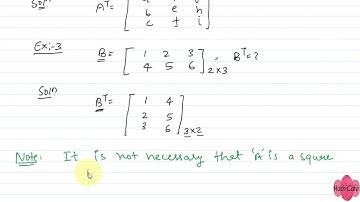 Soln Aᵀ = [
b e h
c f i ]
Ex:-3 B = [ 1 2 3
4 5 6 ] 2×3 , Bᵀ = ?
Soln Bᵀ = [ 1 4
2 5
3 6 ] 3×2
Note: It is not necessary that 'A' is a squre
Math Cafe